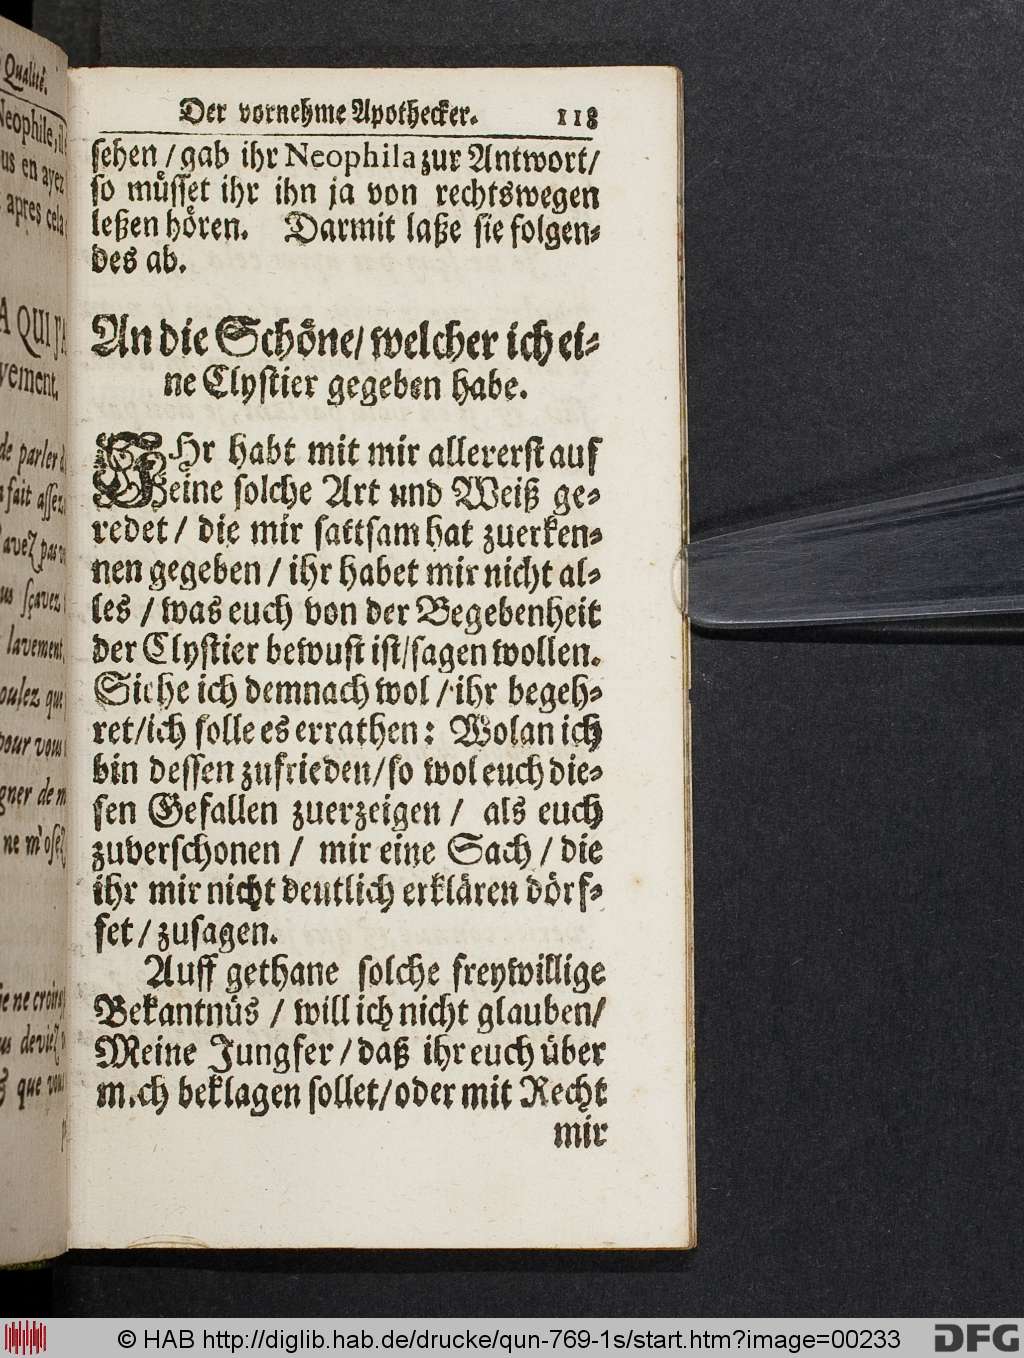 Qualité.
Neophile, il
us en ayez
apres cela
A QUI J'A
vement.
de parler d
fait assez
avez pas v
us sçavez
lavement,
oulez que
pour vous
gner de m
ne m'osez
je ne croira
us deviez
que vous
Der vornehme Apothecker. 118
sehen / gab ihr Neophila zur Antwort /
so müsset ihr ihn ja von rechtswegen
leßen hören. Darmit laße sie folgen-
des ab.
An die Schöne / welcher ich ei-
ne Clystier gegeben habe.
IHr habt mit mir allererst auf
eine solche Art und Weiß ge-
redet / die mir sattsam hat zuerken-
nen gegeben / ihr habet mir nicht al-
les / was euch von der Begebenheit
der Clystier bewust ist / sagen wollen.
Siehe ich demnach wol / ihr begeh-
ret / ich solle es errathen: Wolan ich
bin dessen zufrieden / so wol euch die-
sen Gefallen zuerzeigen / als euch
zuverschonen / mir eine Sach / die
ihr mir nicht deutlich erklären dörf-
fet / zusagen.
Auff gethane solche freywillige
Bekantnüs / will ich nicht glauben /
Meine Jungfer / daß ihr euch über
mich beklagen sollet / oder mit Recht
mir
© HAB http://diglib.hab.de/drucke/qun-769-1s/start.htm?image=00233
DFG